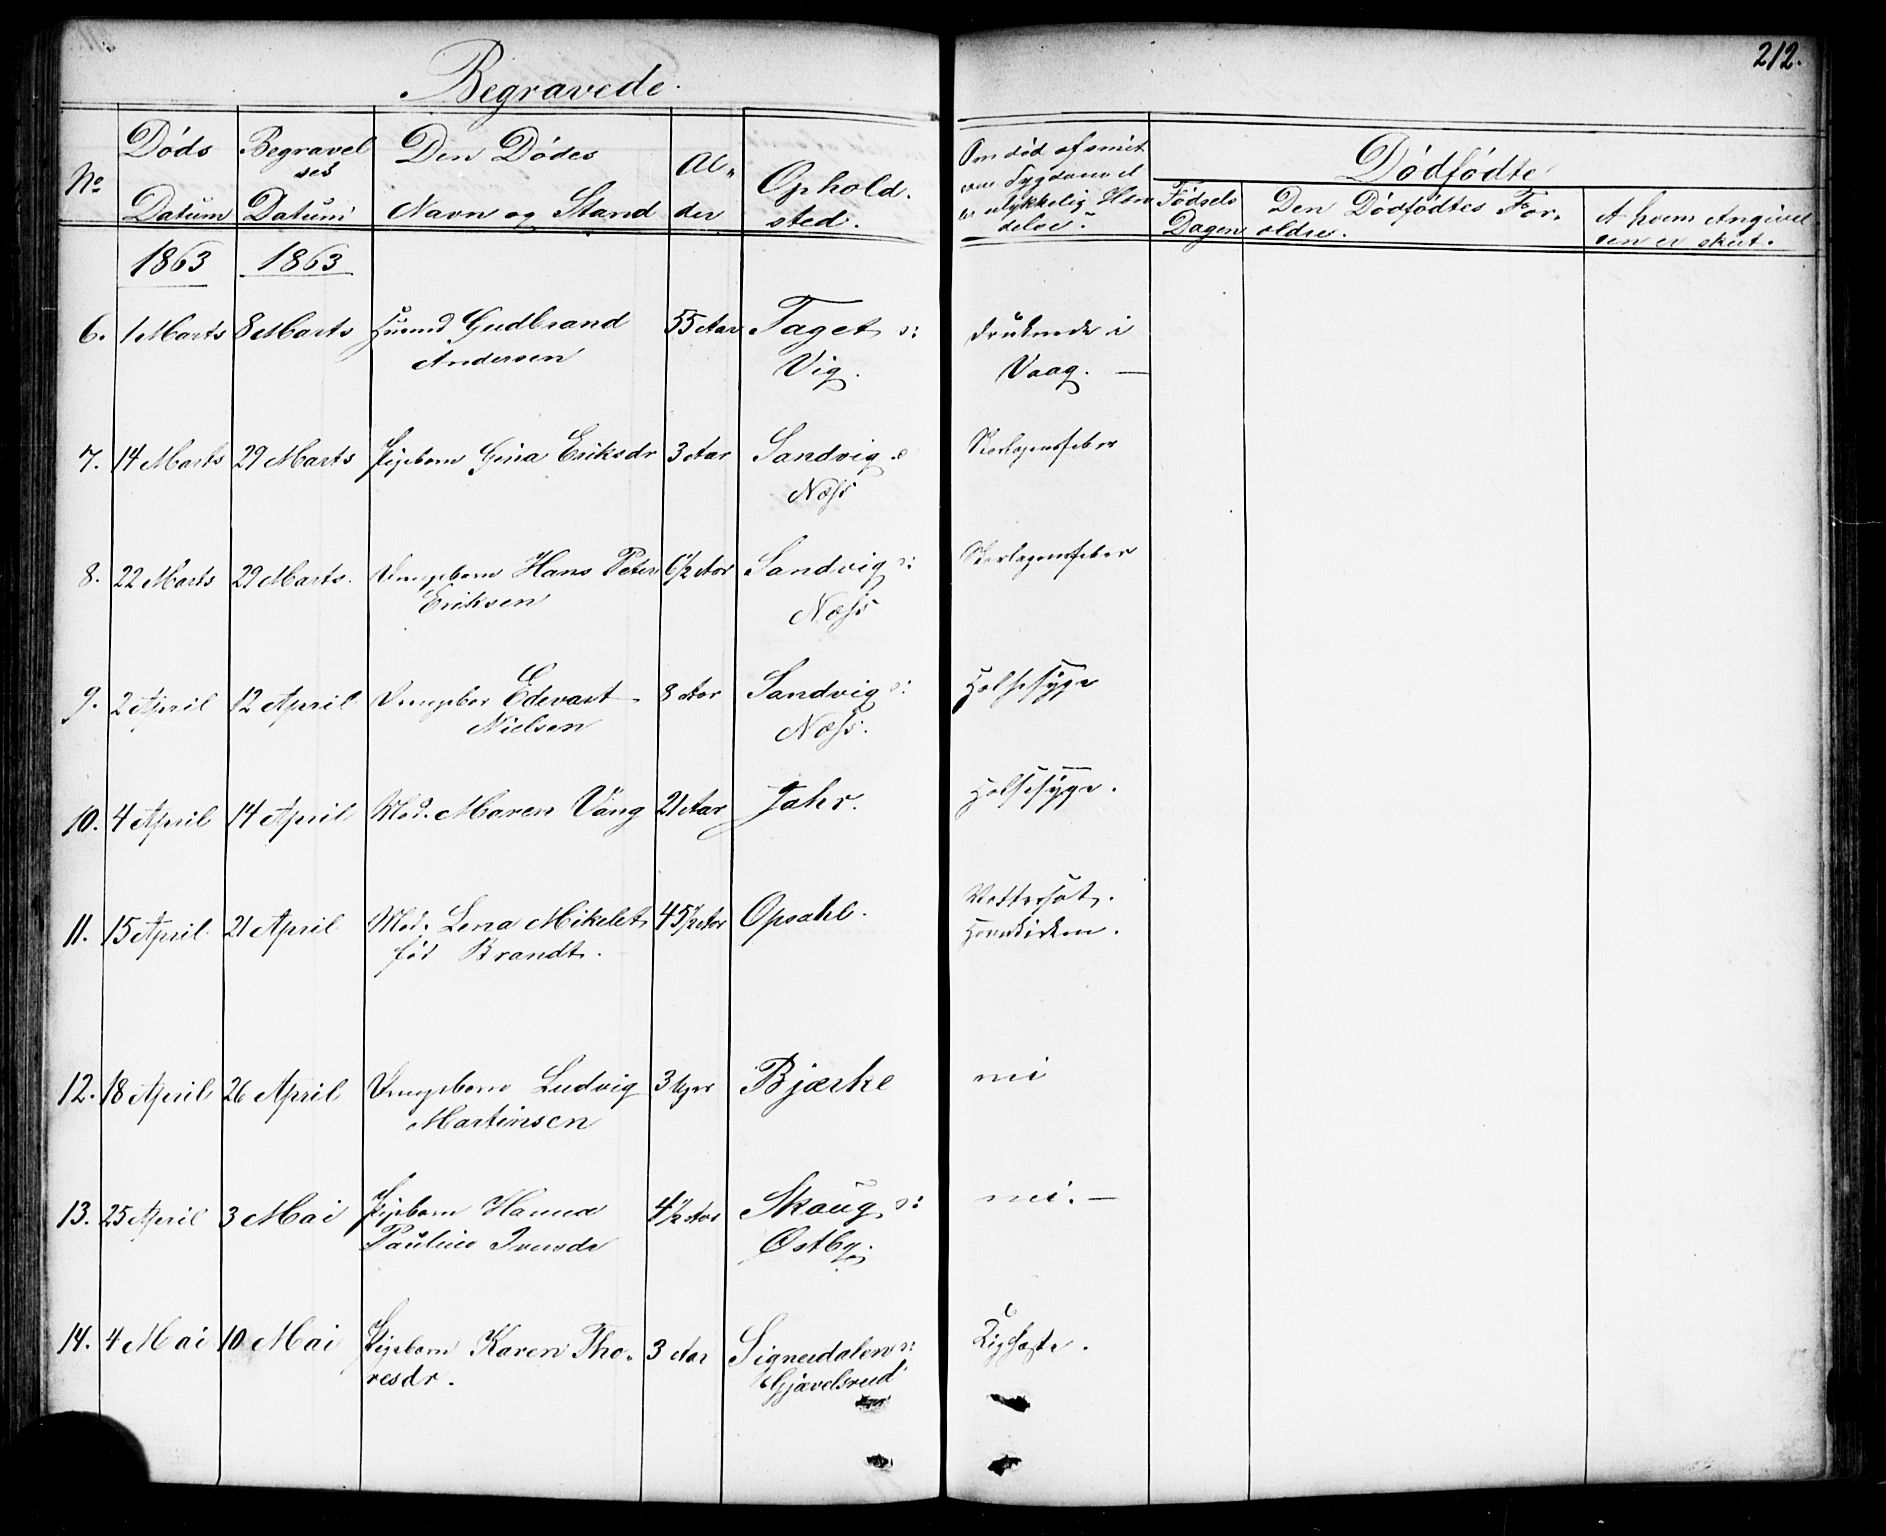 212.
Begravede.
No
Døds Datum
Begravelses Datum
Den Dødes Navn og Stand
Alder
Opholdsted.
Om død af smit
som Sygdom el
ulykkelig Hen
delse.
Dødfødte
Fødsels Dagen
Den Dødfødtes Forældre.
At hvem Angivelsen er skeet.
1863 1863
6. 1 Marts 8 Marts Huusmd Gudbrand 55 Aar Taget o: druknede i
Andersen Vig. Vaag. —
7. 14 Marts 29 Marts Pigebarn Gina Eriksdr 3 Aar Sandvig Skarlagensfeber
Næss
8. 22 Marts 29 Marts. Drengebarn Hans Peter 6 1/2 Aar Sandvig o: Skarlagensfeber
Eriksen Næss
9. 2 April 12 April Drengebar Edevart 8 Aar Sandvig o: Halssyge
Nielsen Næss.
10. 4 April 14 April Mad. Maren Vang 21 Aar Jahr. Halssyge.
11. 15 April 21 April Mad. Lena Mikelet 45 1/2 Aar Opsahl. Vattersot.
fød Brandt.
12. 18 April 26 April Drengebarn Ludvig 3 Uger Bjærke nei
Martinsen
13. 25 April 3 Mai Pigebarn Hanna 4 1/2 Aar Skoug o: nei. —
Pauline Iversdr Østby.
14. 4 Mai 10 Mai Pigebarn Karen Tho- 3 Aar Signerdalen o:
resdr. Gjævelsrud